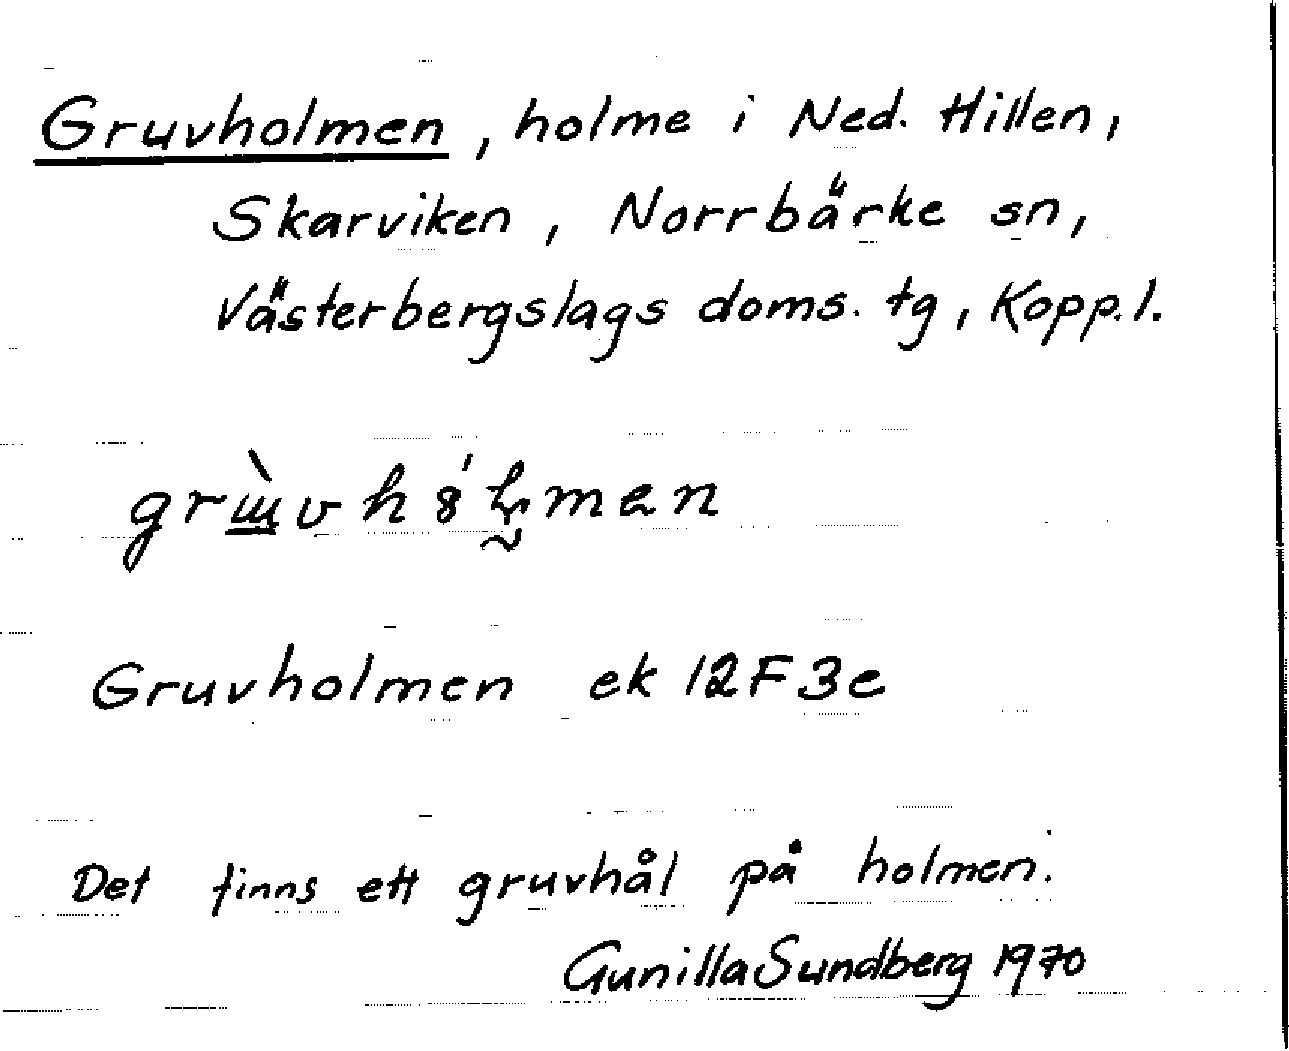 Gruvholmen, holme i Ned. Hillen,
Skarviken, Norrbärke sn,
Västerbergslags doms. tg, Kopp. l.
Gruvholmen ek 12F3e
Det finns ett gruvhål på holmen.
Gunilla Sundberg 1970